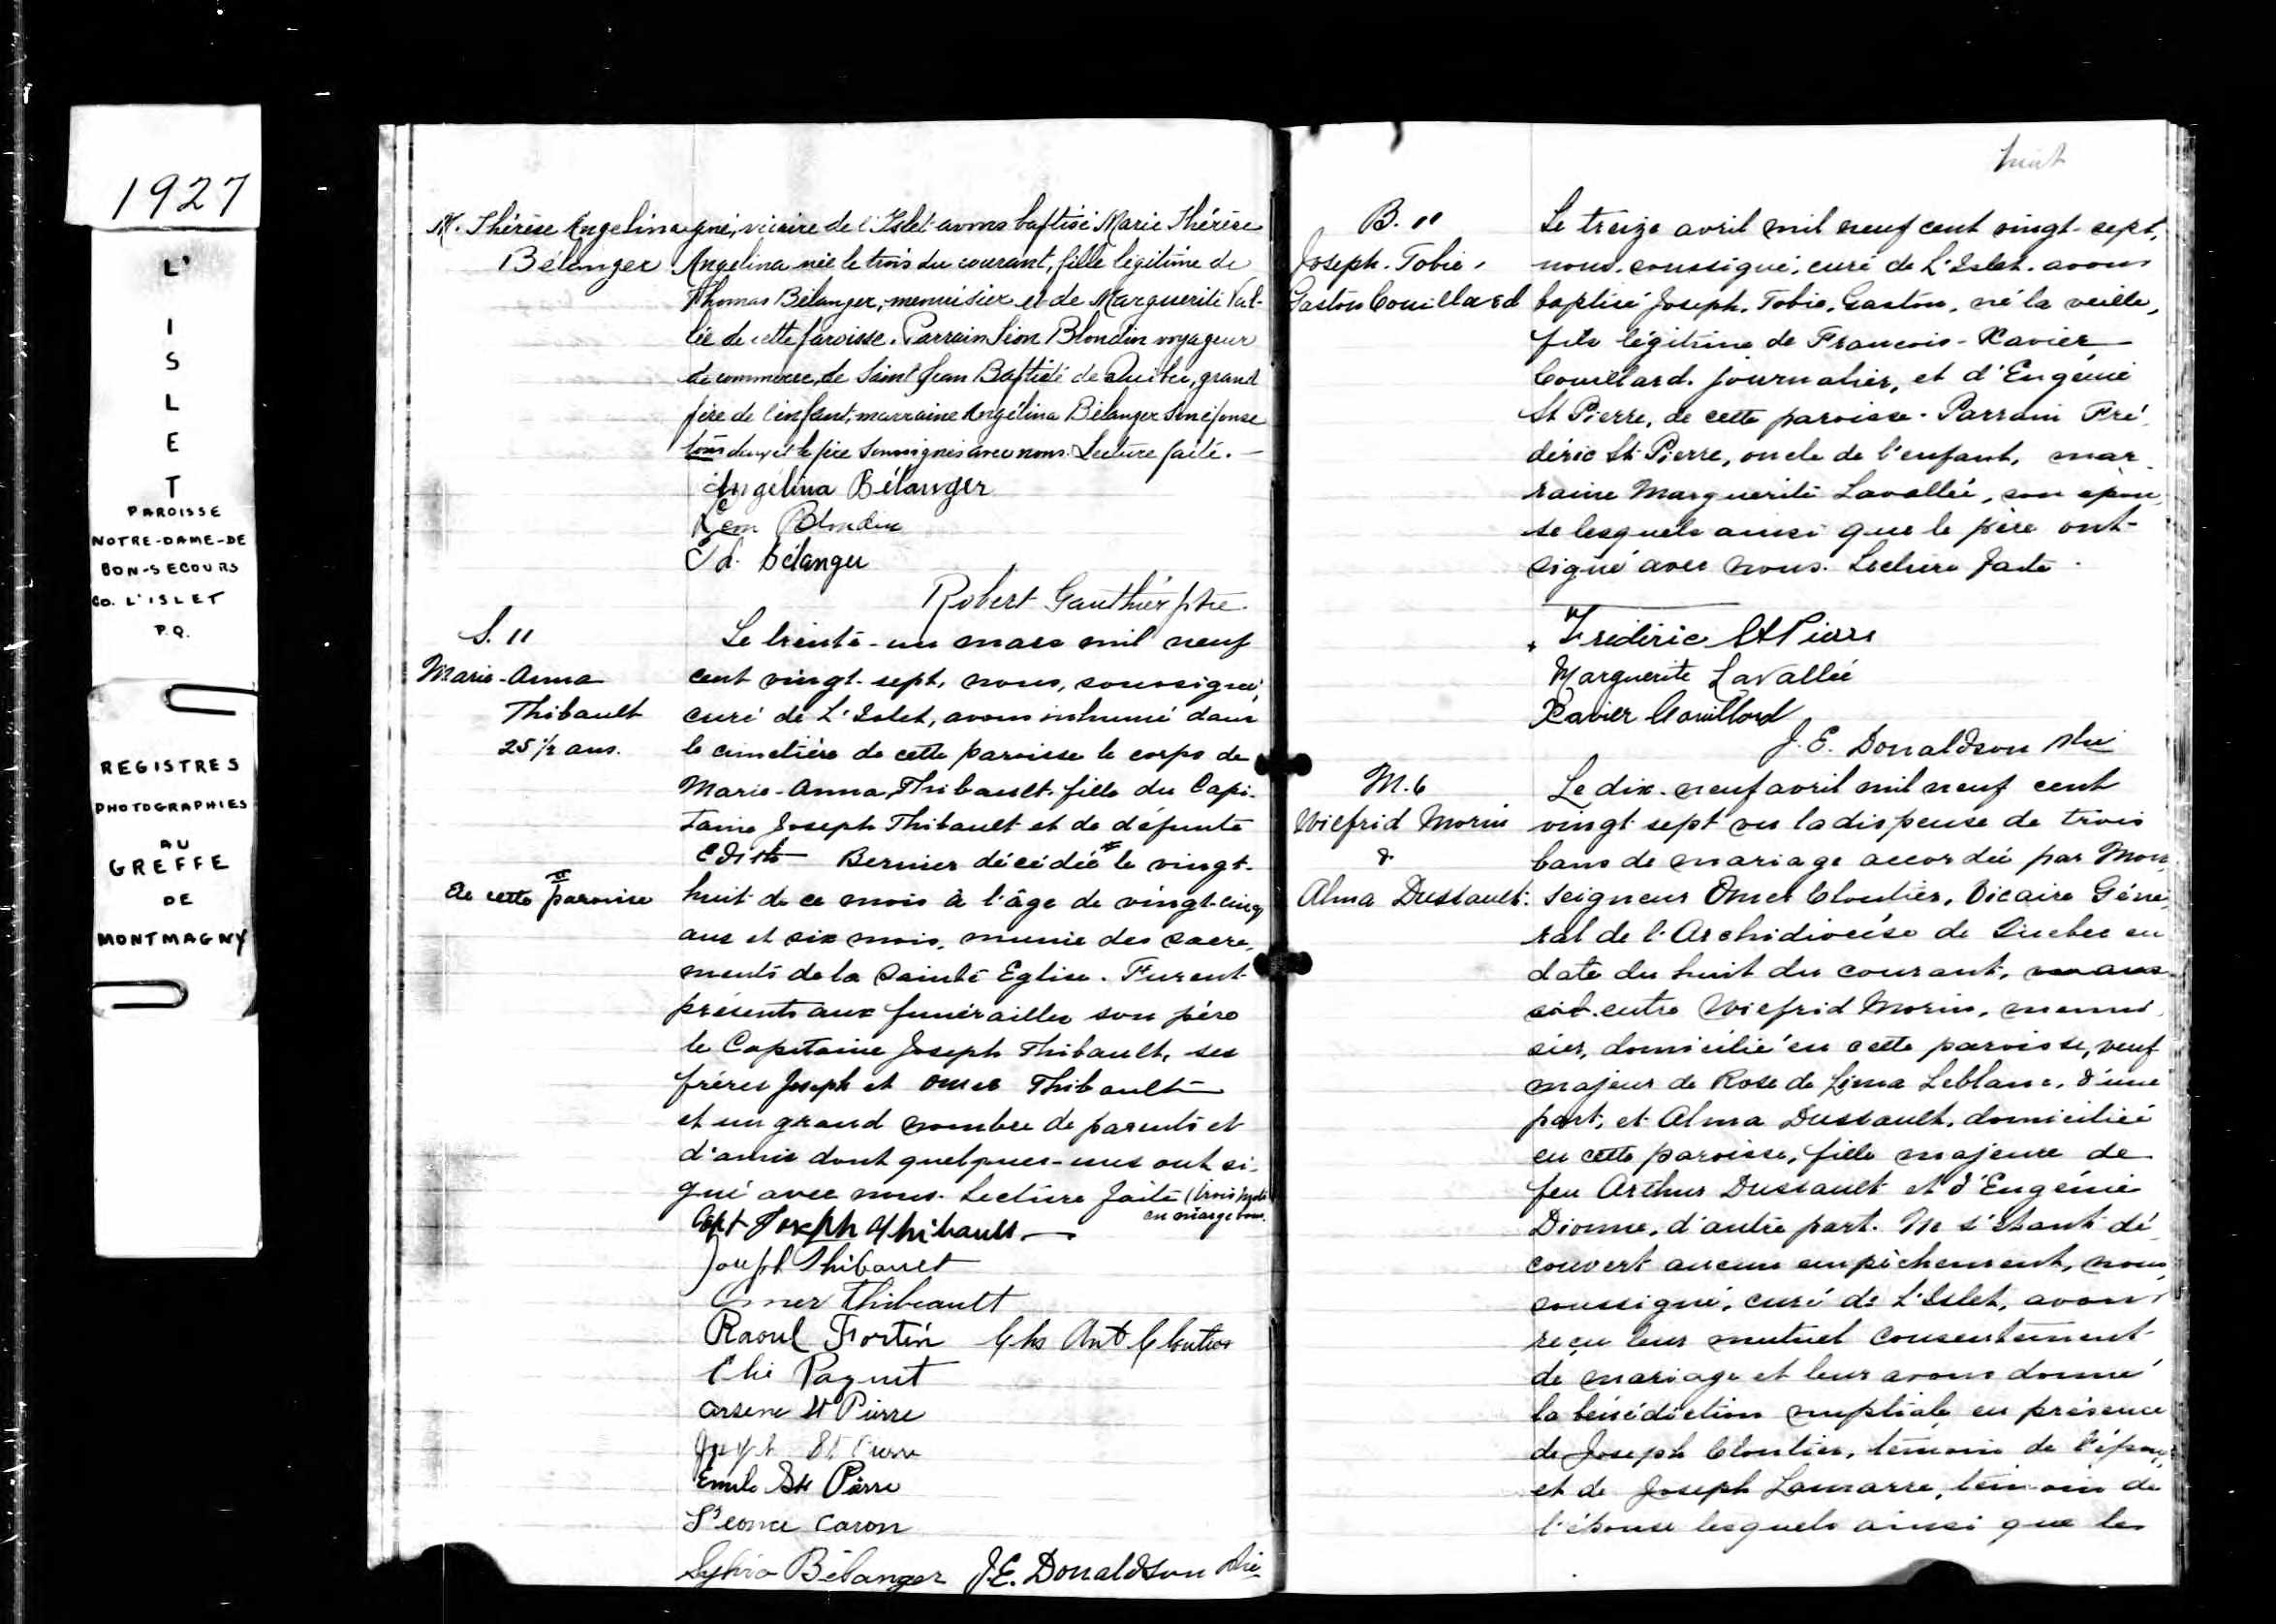 1927
L'
I
S
L
E
T
PAROISSE
NOTRE-DAME-DE
BON-SECOURS
CO. L'ISLET
P.Q.
REGISTRES
PHOTOGRAPHIES
AU
GREFFE
DE
MONTMAGNY
M. Thérèse Angelina
Bélanger
gné, vicaire de l'Islet avons baptisé Marie Thérèse
Angelina née le trois du courant, fille légitime de
Thomas Bélanger, menuisier et de Marguerite Val-
lée de cette paroisse. Parrain Léon Blondin voyageur
de commerce, de Saint Jean Baptiste de Québec, grand
père de l'enfant, marraine Angélina Bélanger son épouse
tous deux et le père soussignés avec nous. Lecture faite.
Angélina Bélanger
Léon Blondin
Bélanger
Robert Gauthier ptre
S. 11
Marie-Anna
Thibault
25 ½ ans.
Le trente-un mars mil neuf
cent vingt-sept, nous, soussigné,
curé de L'Islet, avons inhumé dans
le cimetière de cette paroisse le corps de
Marie-Anna Thibault fille du Capi-
taine Joseph Thibault et de défunte
Edith Bernier décédée # le vingt-
# de cette paroisse
huit de ce mois à l'âge de vingt-cinq
ans et six mois, munie des sacre-
ments de la Sainte Eglise. Furent
présents aux funérailles son père
le Capitaine Joseph Thibault, ses
frères Joseph et Omer Thibault
et un grand nombre de parents et
d'amis dont quelques-uns ont si-
gné avec nous. Lecture faite (trois mots
en marge bons.
Capt Joseph Thibault
Joseph Thibault
Omer Thibeault
Raoul Fortin Chs Ant Cloutier
Elie Paquet
Arsene St Pierre
Joseph St Pierre
Emile St Pierre
Léonce Caron
Sylvio Bélanger J.E. Donaldson ptre
huit
B. 11
Joseph. Tobie.
Gaston Couillard
Le treize avril mil neuf cent vingt-sept,
nous, soussigné, curé de L'Islet, avons
baptisé Joseph, Tobie, Gaston, né la veille,
fils légitime de Francois-Xavier
Couillard, journalier, et d'Eugénie
St Pierre, de cette paroisse. Parrain Fré-
déric St-Pierre, oncle de l'enfant, mar-
raine Marguerite Lavallée, son épou-
se lesquels ainsi que le père ont
signé avec nous. Lecture faite.
Frédéric St Pierre
Marguerite Lavallée
Xavier Couillard
J.E. Donaldson ptre
M. 6
Wilfrid Morin
&
Alma Dussault
Le dix-neuf avril mil neuf cent
vingt sept vu la dispense de trois
bans de mariage accordée par Mon-
seigneur Omer Cloutier, Vicaire Géné-
ral de l'Archidiocèse de Québec en
date du huit du courant,
entre Wilfrid Morin, menui-
sier, domicilié en cette paroisse, veuf
majeur de Rose de Lima Leblanc, d'une
part, et Alma Dussault, domiciliée
en cette paroisse, fille majeure de
feu Arthur Dussault et d'Eugénie
Dionne, d'autre part. Ne s'étant dé-
couvert aucun empêchement, nous,
soussigné, curé de L'Islet, avons
reçu leur mutuel consentement
de mariage et leur avons donné
la bénédiction nuptiale en présence
de Joseph Cloutier, témoin de l'époux,
et de Joseph Lamarre, témoin de
l'épouse lesquels ainsi que les